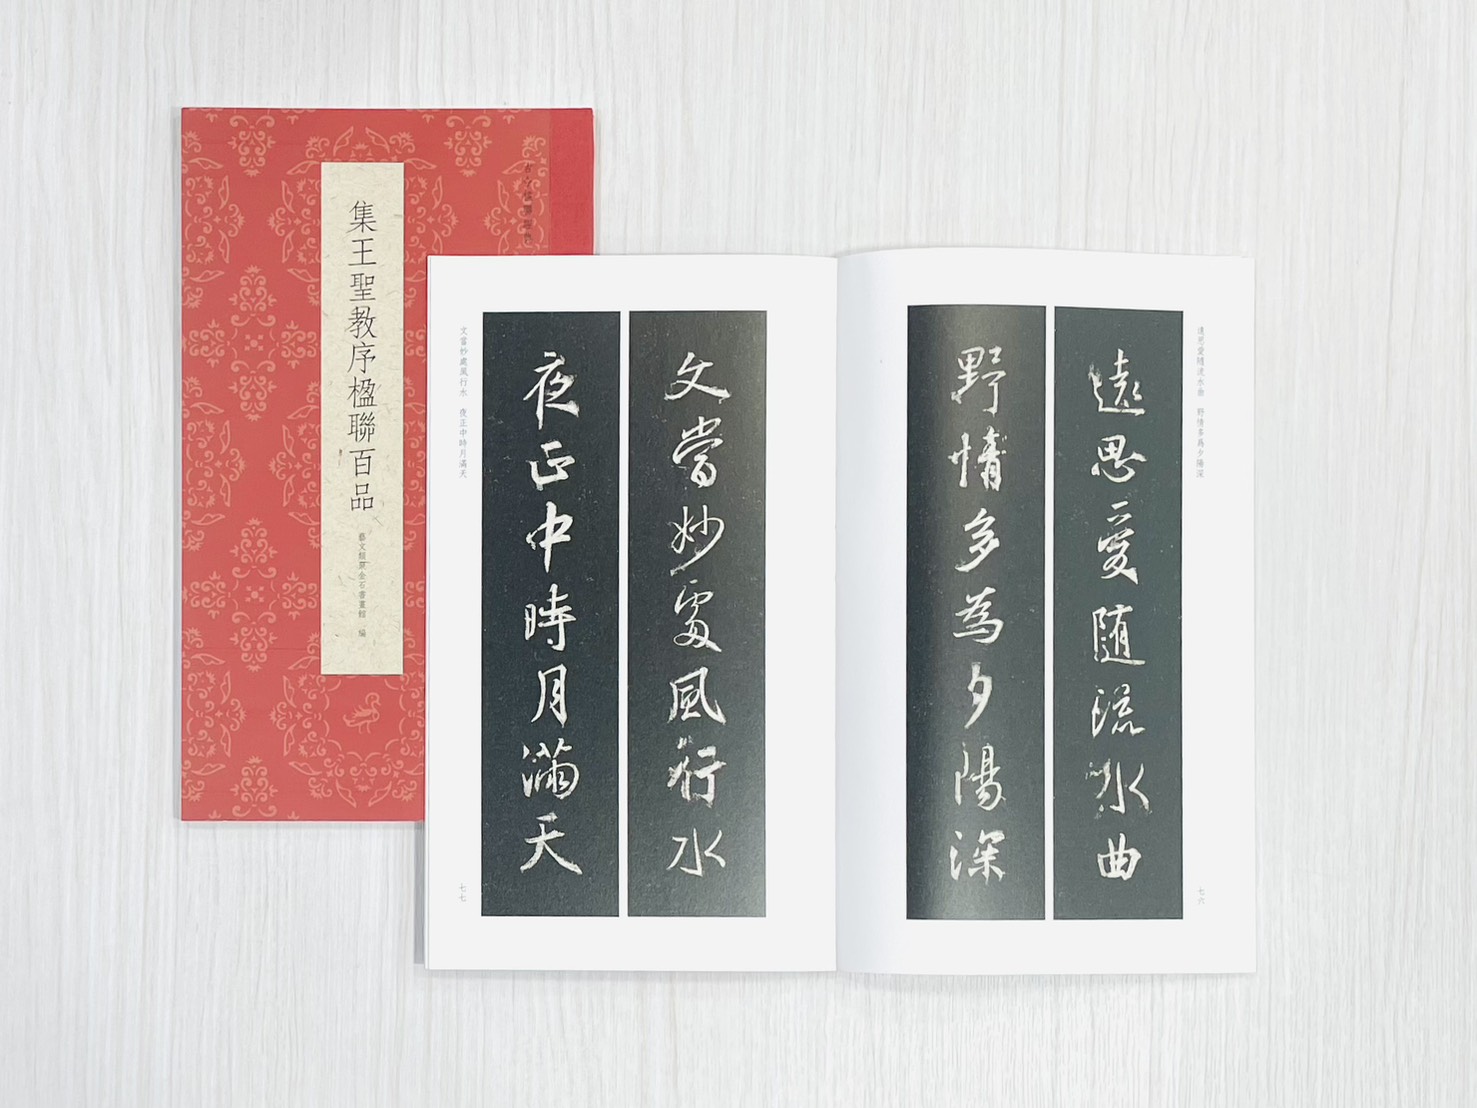 集王聖教序楹聯百品
藝文類聚金石書畫館 編
遠思愛隨流水曲 野情多爲夕陽深
遠思愛隨流水曲
野情多為夕陽深
七六
文當妙處風行水
夜正中時月滿天
文當妙處風行水 夜正中時月滿天
七七